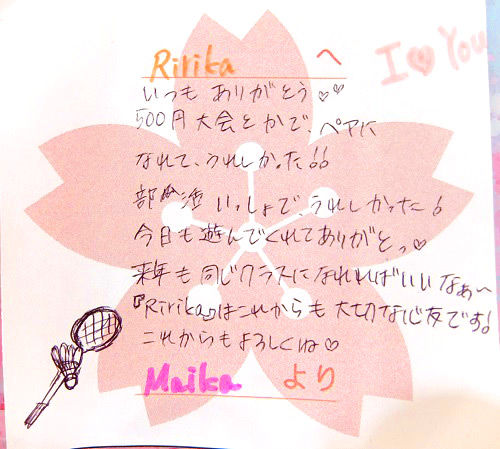 I♡You
Ririka へ
いつもありがとう♡♡
500円大会とかで、ペアに
なれて、うれしかった!!
部活いっしょで、うれしかったー!
今日も遊んでくれてありがとっ♡
来年も同じクラスになれればいいなぁ〜
『Ririka』はこれからも大切な心友です!
これからもよろしくね♡
Maika より